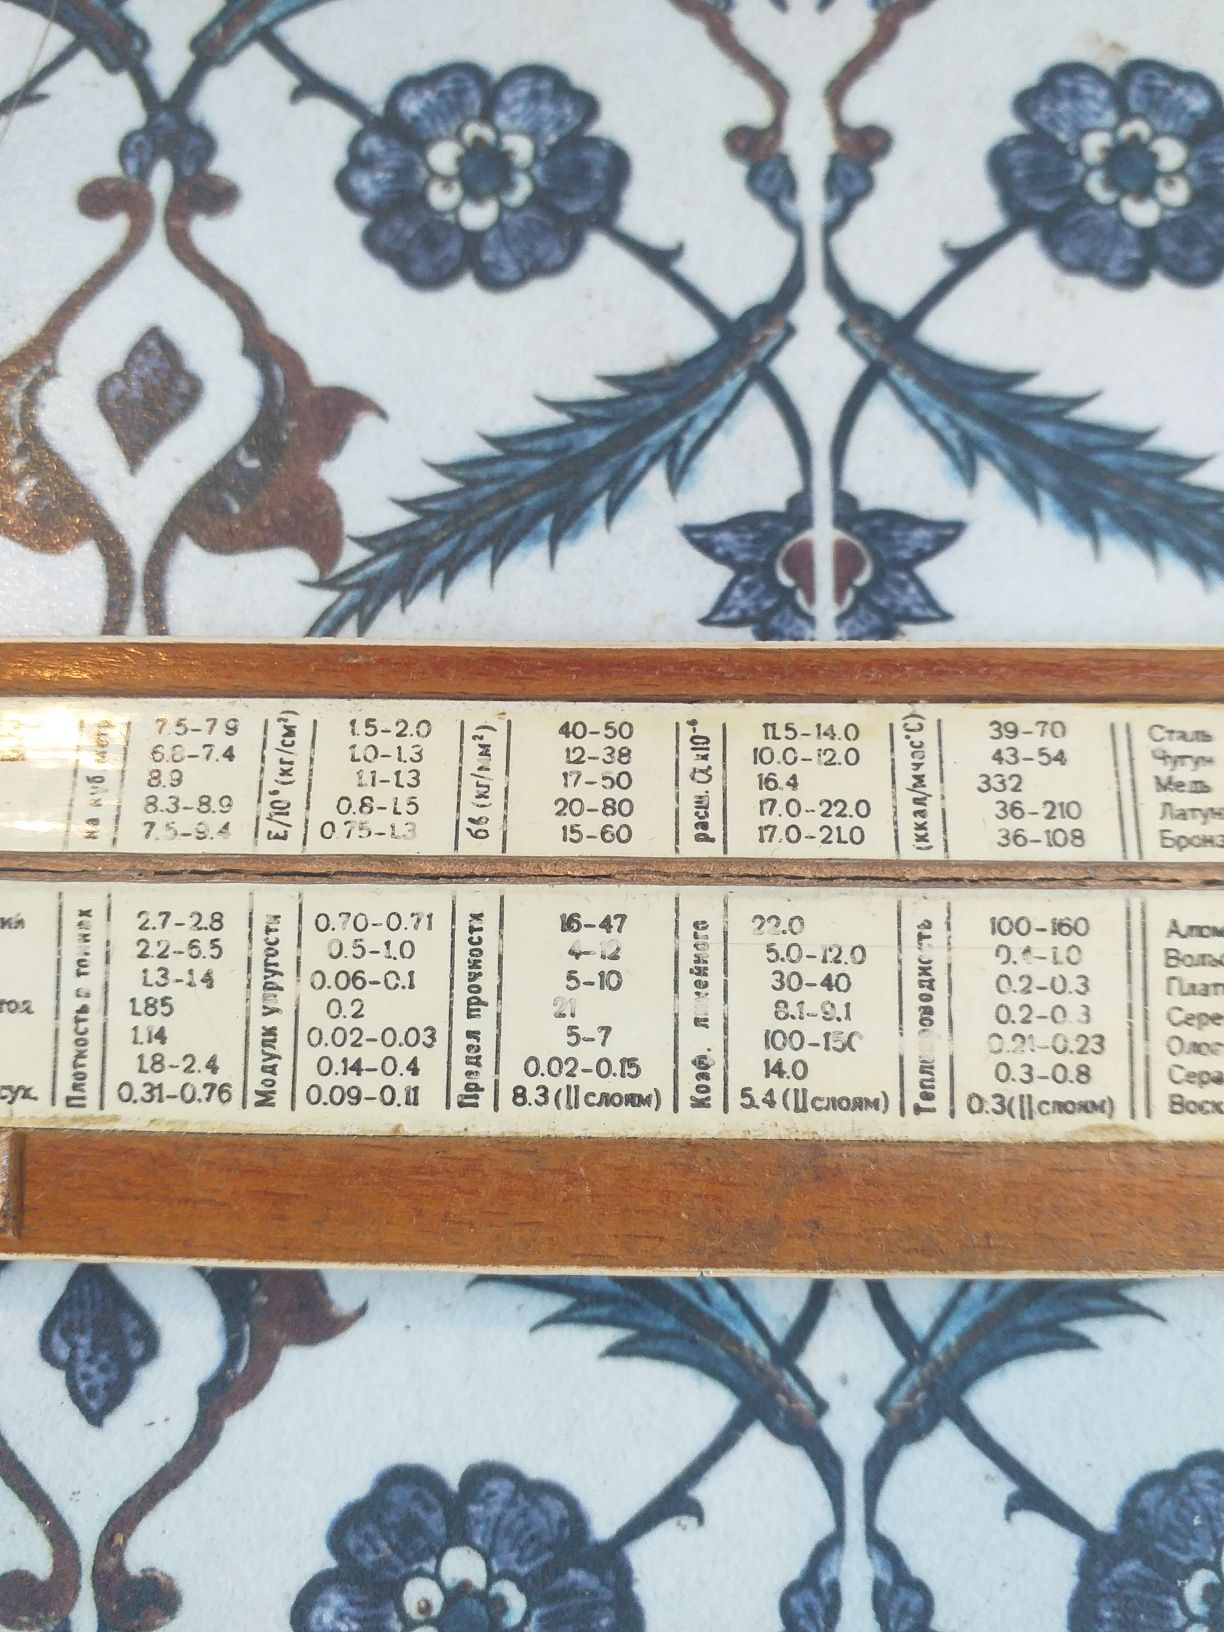 на куб. метр
7.5-7.9 Е/10⁶(кг/см²) 1.5-2.0 бв(кг/мм²) 40-50 расш. α×10⁻⁶ 11.5-14.0 (ккал/мчас°С) 39-70 Сталь
6.8-7.4 1.0-1.3 12-38 10.0-12.0 43-54 Чугун
8.9 1.1-1.3 17-50 16.4 332 Медь
8.3-8.9 0.8-1.5 20-80 17.0-22.0 36-210 Латун
7.5-9.4 0.75-1.3 15-60 17.0-21.0 36-108 Бронз
Плотность в тоннах Модуль упругости Предел прочности Коэф. линейного Теплопроводность
2.7-2.8 0.70-0.71 16-47 22.0 100-160 Алюм
2.2-6.5 0.5-1.0 4-12 5.0-12.0 Воль
1.3-1.4 0.06-0.1 5-10 30-40 0.2-0.3 Плат
1.85 0.2 21 8.1-9.1 0.2-0.3 Сере
1.14 0.02-0.03 5-7 100-150 0.21-0.23 Олов
1.8-2.4 0.14-0.4 0.02-0.15 14.0 0.3-0.8 Сера
сух. 0.31-0.76 0.09-0.11 8.3(||слоям) 5.4(||слоям) 0.3(||слоям) Воск